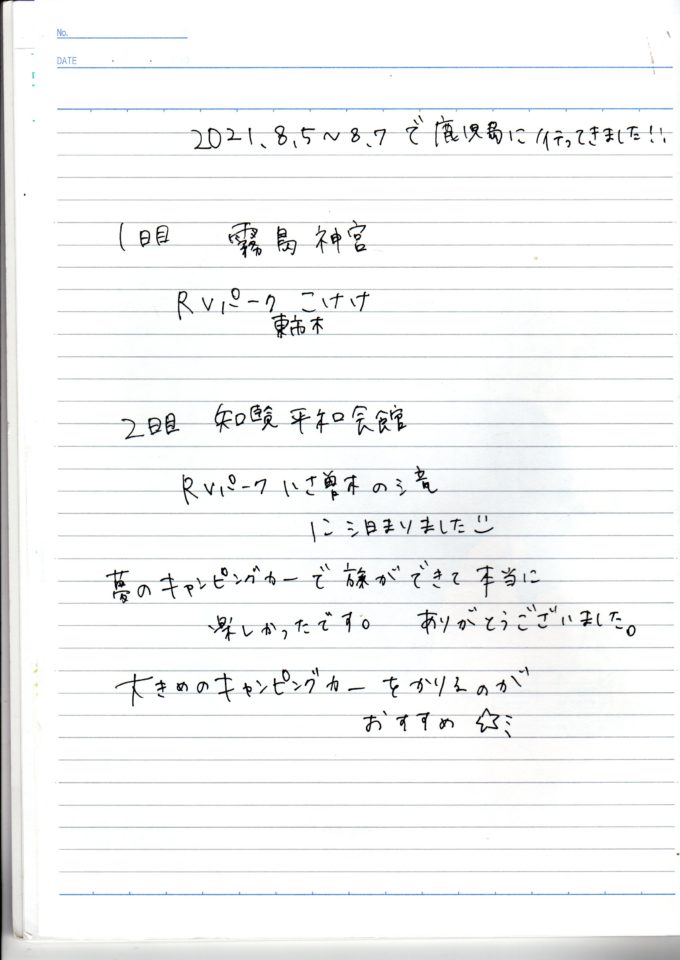 No.
DATE
2021.8.5～8.7 で鹿児島に行ってきました!!
1日目 霧島神宮
RVパーク こけけ
東市木
2日目 知覧平和会館
RVパーク いさ曽木の滝
に泊まりました
夢のキャンピングカーで旅ができて本当に
楽しかったです。 ありがとうございました。
大きめのキャンピングカーをかりるのが
おすすめ☆